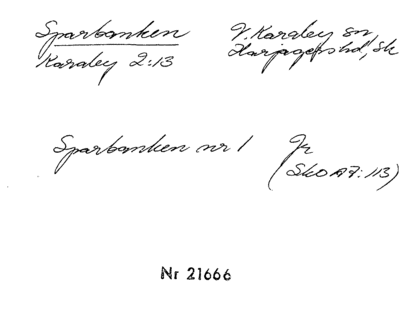 Sparbanken
Karaby 2:13
V. Karaby sn,
Harjagers hd, Sk
Sparbanken nr 1
Jr
(Sko A7:113)
Nr 21666